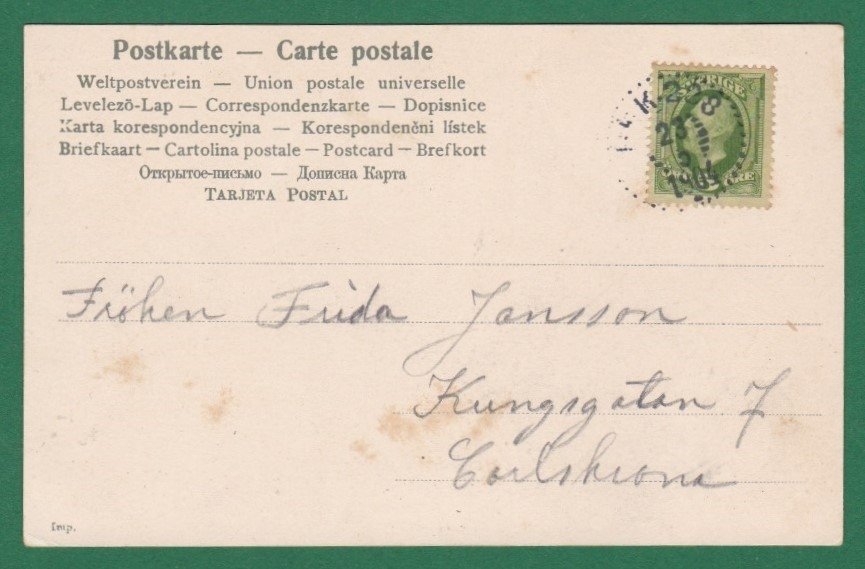 Postkarte — Carte postale
Weltpostverein — Union postale universelle
Levelező-Lap — Correspondenzkarte — Dopisnice
Karta korespondencyjna — Korespondenčni lístek
Briefkaart — Cartolina postale — Postcard — Brefkort
Открытое-письмо — Дописна Карта
TARJETA POSTAL
SVERIGE
23
1904
ÖRE
Fröken Frida Jansson
Kungsgatan 7
Carlskrona
Imp.